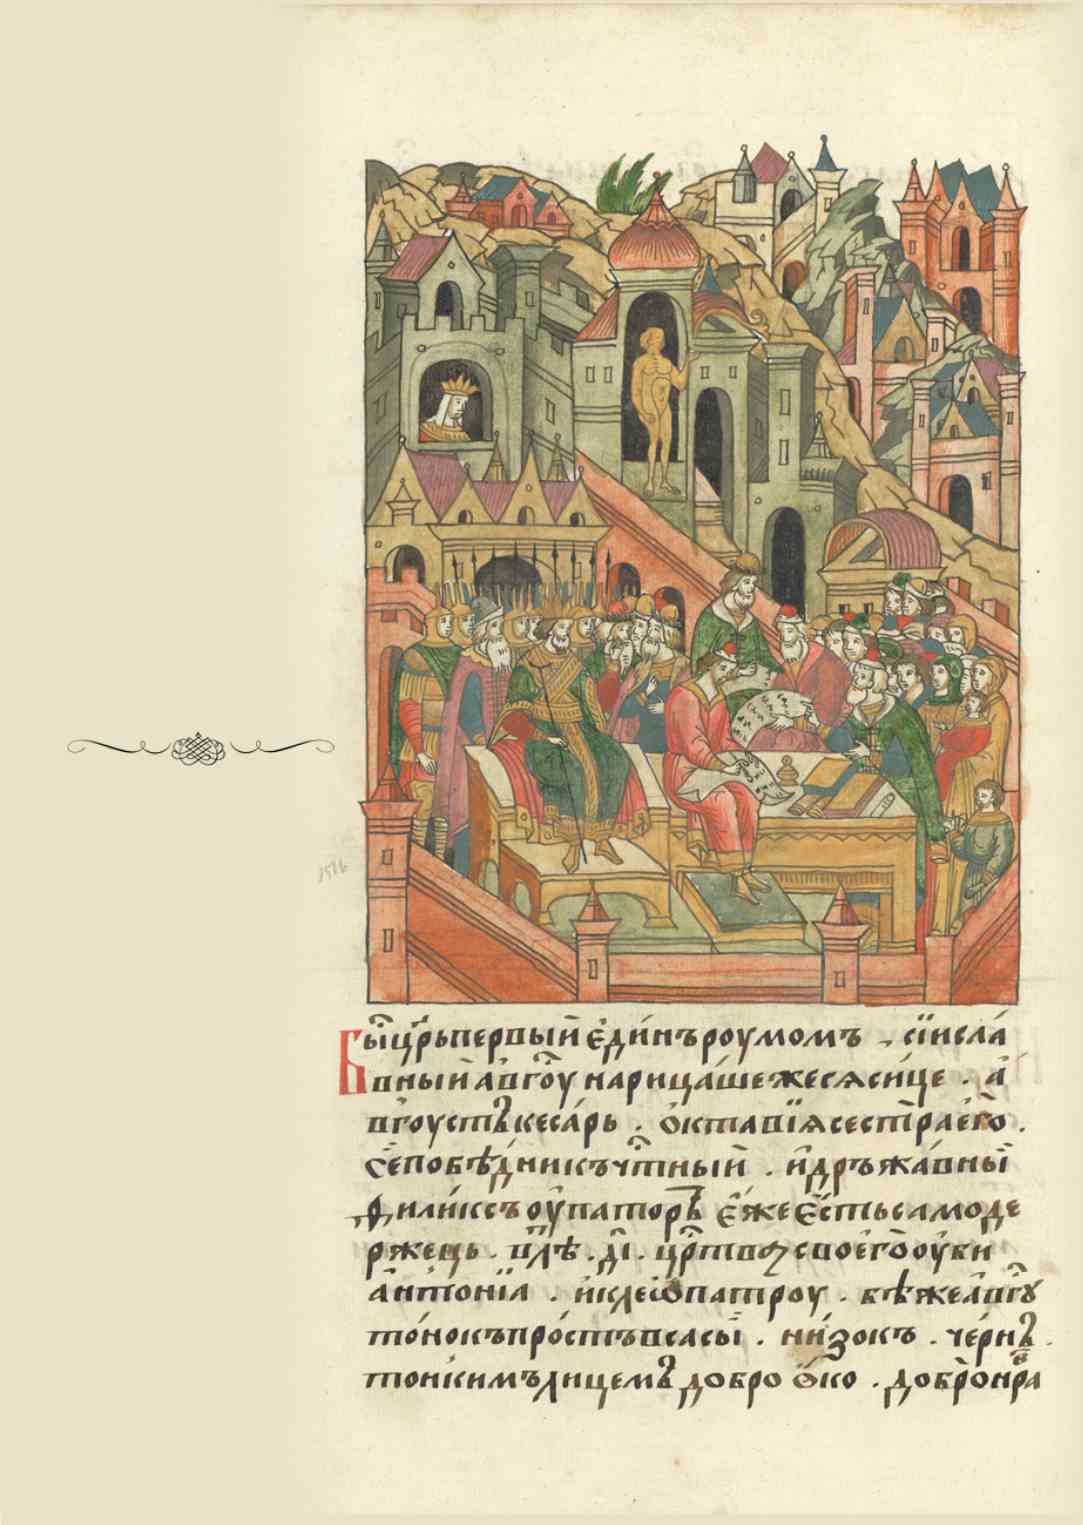 Бы́ц҃рьпервый є҆ди́нъроумомъ . сїисла́
вный а҆вгоу нарица́шежесѧси́це . а҆́
вгоустъкеса́рь . ѻ҆ктавїѧсестраего .
сепобѣ́дникъчтный . и҆дръжа́вный
филиксъ оу҆паторъ є҆́жее҆стьсамоде
ржець . влѣ . д҃і . црⷭ҇твоу своегооуби
антонїа . иклеѡпатроу . бѣжеавгꙋ
то́нокъпро́стъвсасы̀ . ни́зокъ . че́рнъ .
тонкимълицемъ добро ѻ҆ко . добронра
1516